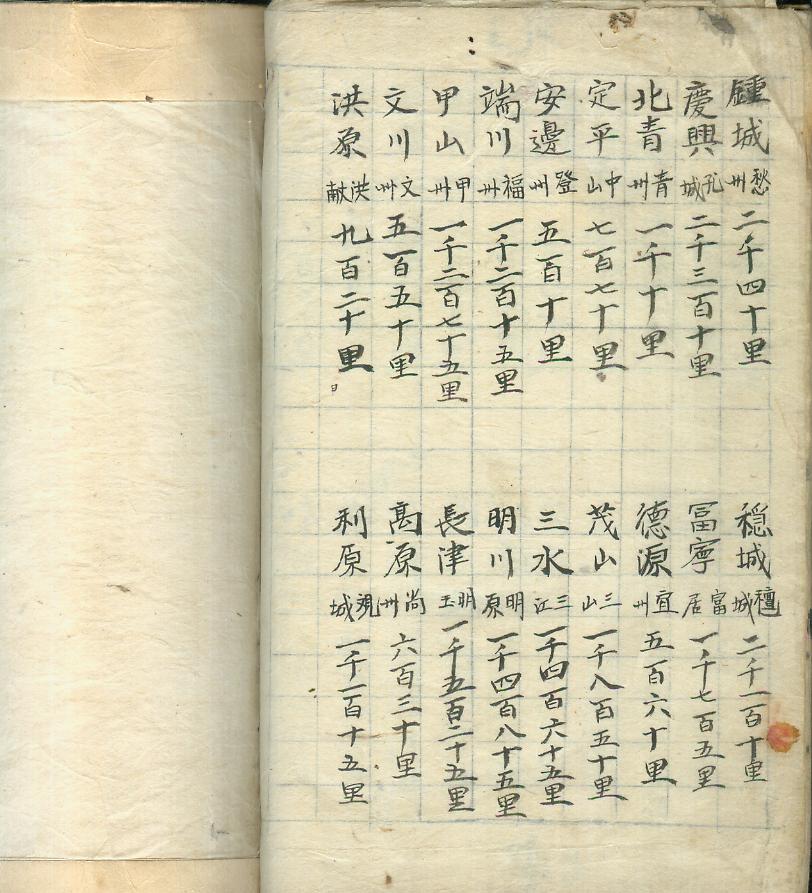 鍾城 愁州 二千四十里
穏城 氊城 二千一百十里
慶興 孔城 二千三百十里
冨寧 富居 一千七百五里
北青 青州 一千十里
德源 宜州 五百六十里
定平 中山 七百七十里
茂山 三山 一千八百五十里
安邊 登州 五百十里
三水 三江 一千四百六十五里
端川 福州 一千二百十五里
明川 明原 一千四百八十五里
甲山 甲州 一千二百七十五里
長津 明玉 一千五百二十五里
文川 文州 五百五十里
高原 尚州 六百三十里
洪原 洪献 九百二十里
利原 城 一千一百十五里